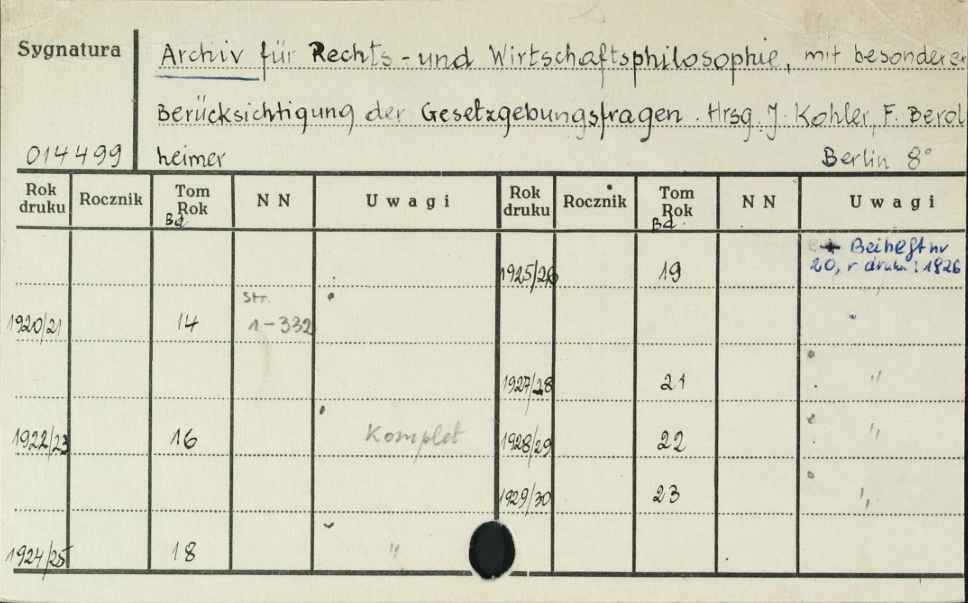 Sygnatura Archiv für Rechts- und Wirtschaftsphilosophie, mit besonderer
Berücksichtigung der Gesetzgebungsfragen. Hrsg. J. Kohler, F. Berol
014499 heimer Berlin 8°
Rok druku Rocznik Tom Rok Bd NN Uwagi Rok druku Rocznik Tom Rok Bd. NN Uwagi
1925/26 19 + Beiheft nr
20, r druku: 1926
1920/21 14 Str. 1-332 "
1927/28 21 "
1922/23 16 Komplet 1928/29 22 "
1929/30 23 "
1924/25 18 "